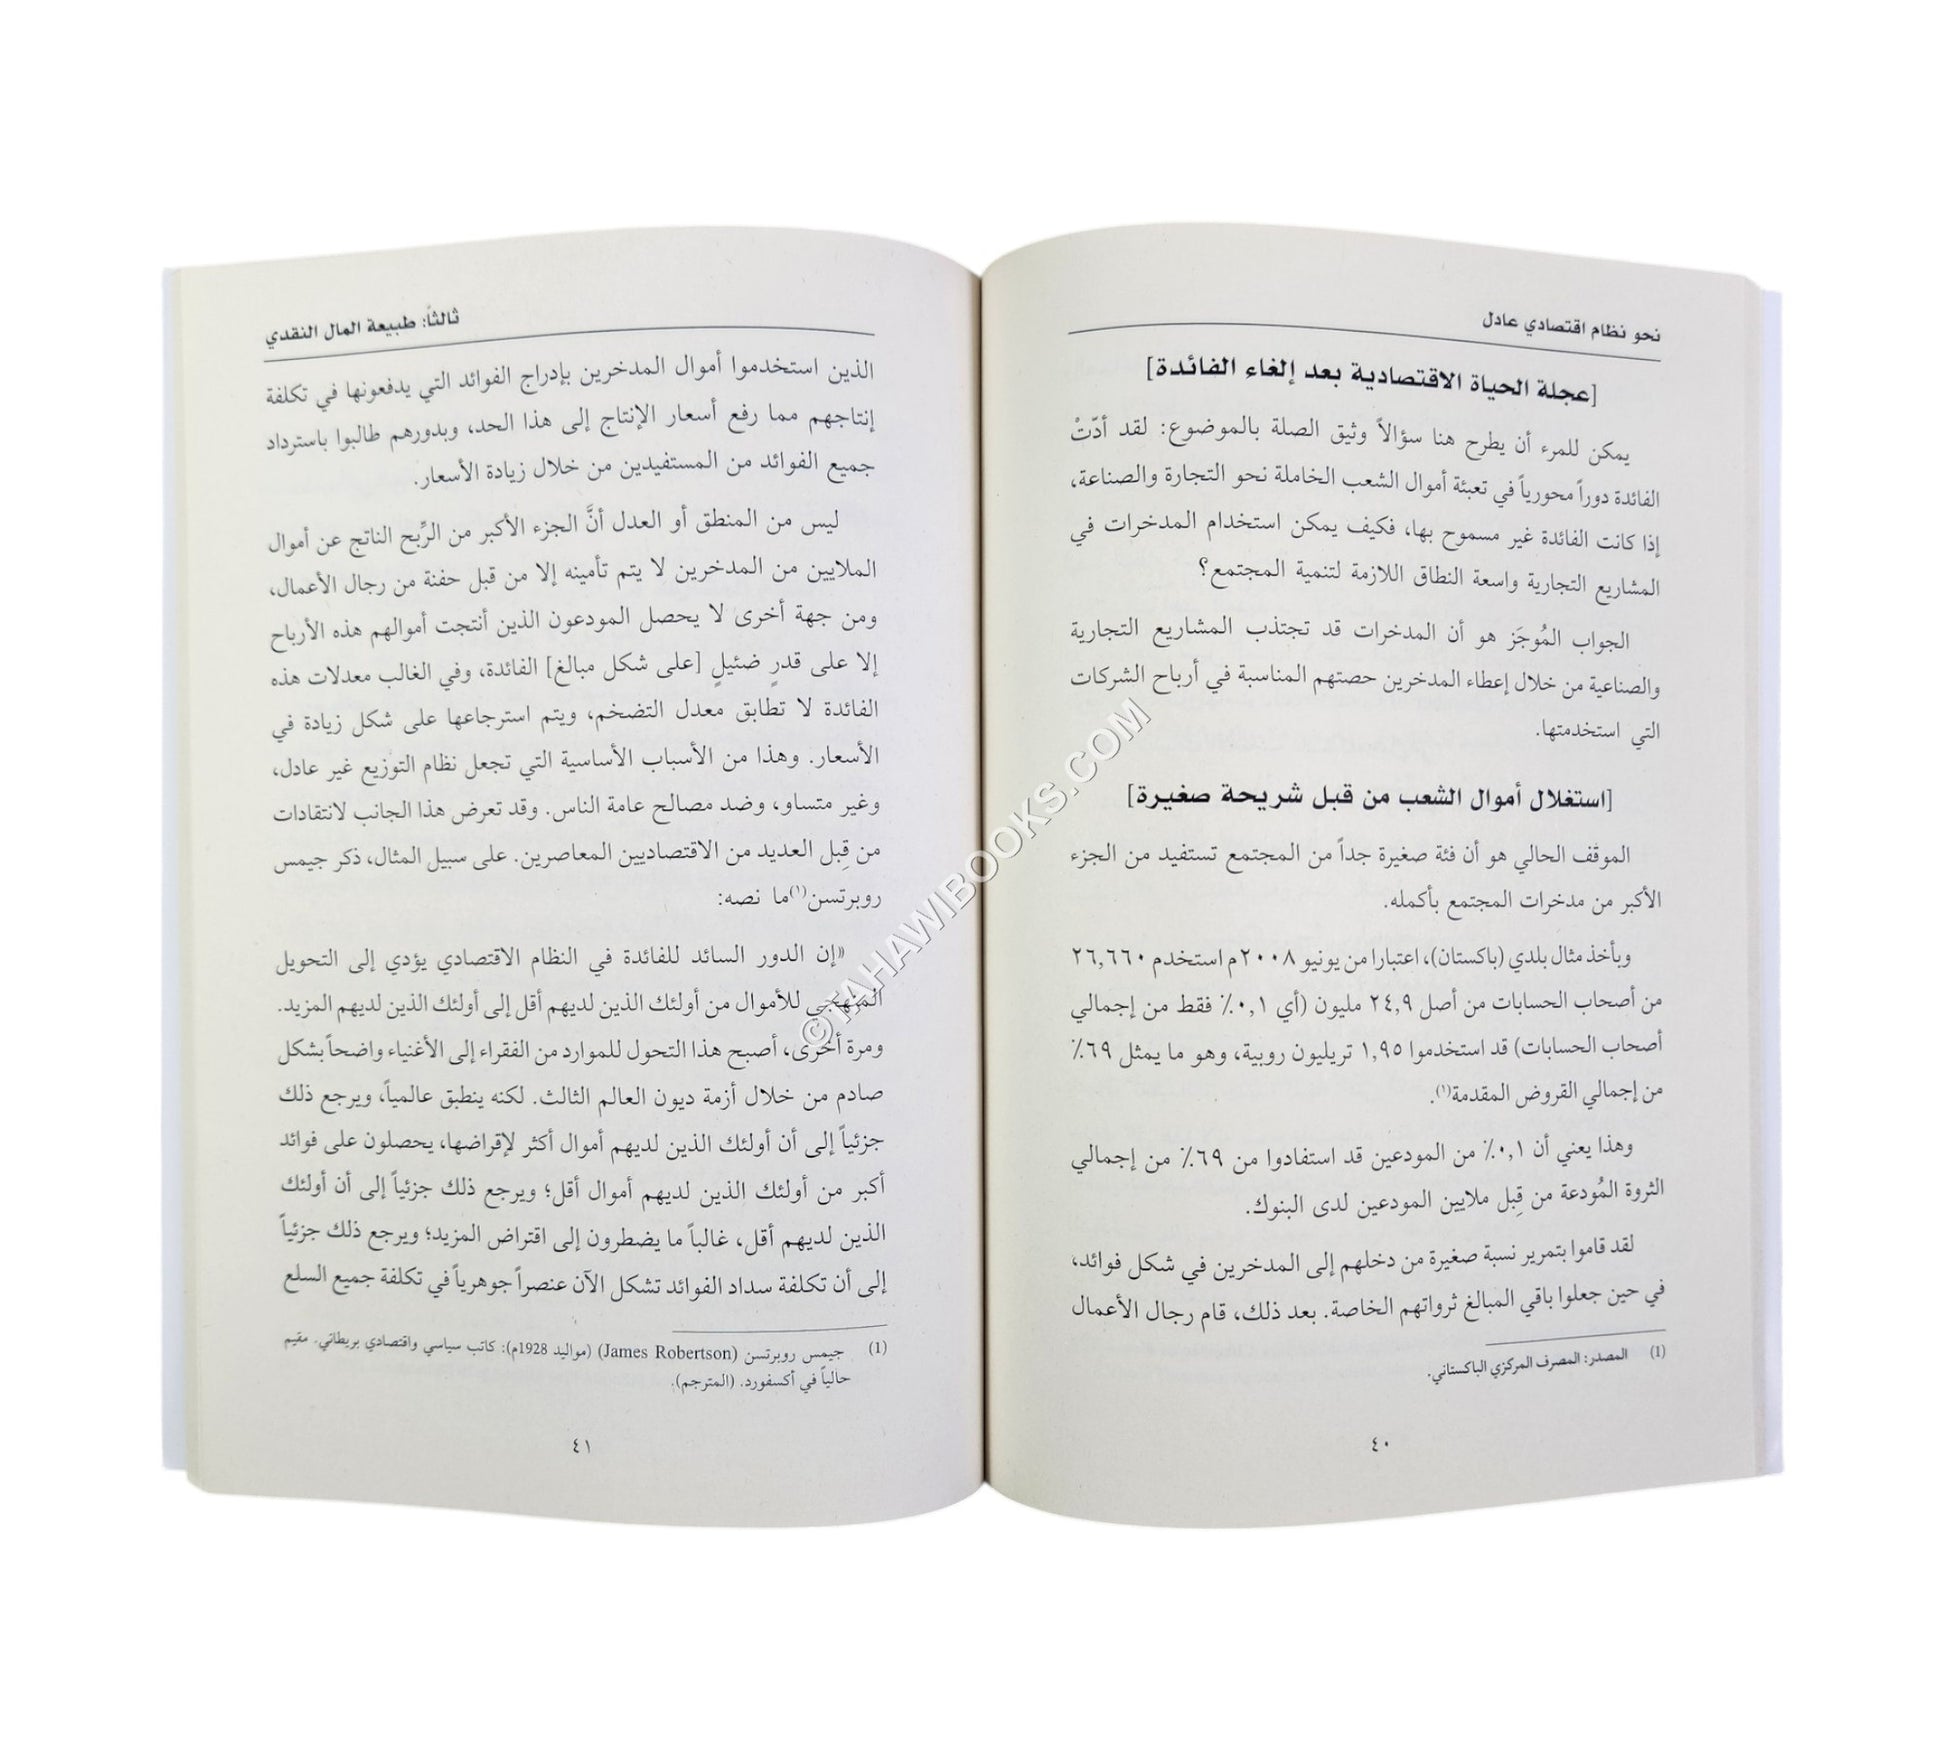 نحو نظام اقتصادي عادل
[عجلة الحياة الاقتصادية بعد إلغاء الفائدة]
يمكن للمرء أن يطرح هنا سؤالاً وثيق الصلة بالموضوع: لقد أدّتْ
الفائدة دوراً محورياً في تعبئة أموال الشعب الخاملة نحو التجارة والصناعة،
إذا كانت الفائدة غير مسموح بها، فكيف يمكن استخدام المدخرات في
المشاريع التجارية واسعة النطاق اللازمة لتنمية المجتمع؟
الجواب المُوجَز هو أن المدخرات قد تجتذب المشاريع التجارية
والصناعية من خلال إعطاء المدخرين حصتهم المناسبة في أرباح الشركات
التي استخدمتها.
[استغلال أموال الشعب من قبل شريحة صغيرة]
الموقف الحالي هو أن فئة صغيرة جداً من المجتمع تستفيد من الجزء
الأكبر من مدخرات المجتمع بأكمله.
وبأخذ مثال بلدي (باكستان)، اعتبارا من يونيو ٢٠٠٨م استخدم ٢٦,٦٦٠
من أصحاب الحسابات من أصل ٢٤,٩ مليون (أي ٠,١٪ فقط من إجمالي
أصحاب الحسابات) قد استخدموا ١,٩٥ تريليون روبية، وهو ما يمثل ٦٩٪
من إجمالي القروض المقدمة(١).
وهذا يعني أن ٠,١٪ من المودعين قد استفادوا من ٦٩٪ من إجمالي
الثروة المُودعة من قِبل ملايين المودعين لدى البنوك.
لقد قاموا بتمرير نسبة صغيرة من دخلهم إلى المدخرين في شكل فوائد،
في حين جعلوا باقي المبالغ ثرواتهم الخاصة. بعد ذلك، قام رجال الأعمال
(1) المصدر: المصرف المركزي الباكستاني.
٤٠
ثالثاً: طبيعة المال النقدي
الذين استخدموا أموال المدخرين بإدراج الفوائد التي يدفعونها في تكلفة
إنتاجهم مما رفع أسعار الإنتاج إلى هذا الحد، وبدورهم طالبوا باسترداد
جميع الفوائد من المستفيدين من خلال زيادة الأسعار.
ليس من المنطق أو العدل أنَّ الجزء الأكبر من الرِّبح الناتج عن أموال
الملايين من المدخرين لا يتم تأمينه إلا من قبل حفنة من رجال الأعمال،
ومن جهة أخرى لا يحصل المودعون الذين أنتجت أموالهم هذه الأرباح
إلا على قدرٍ ضئيلٍ [على شكل مبالغ] الفائدة، وفي الغالب معدلات هذه
الفائدة لا تطابق معدل التضخم، ويتم استرجاعها على شكل زيادة في
الأسعار. وهذا من الأسباب الأساسية التي تجعل نظام التوزيع غير عادل،
وغير متساو، وضد مصالح عامة الناس. وقد تعرض هذا الجانب لانتقادات
من قِبل العديد من الاقتصاديين المعاصرين. على سبيل المثال، ذكر جيمس
روبرتسن(١)ما نصه:
«إن الدور السائد للفائدة في النظام الاقتصادي يؤدي إلى التحويل
المنهجي للأموال من أولئك الذين لديهم أقل إلى أولئك الذين لديهم المزيد.
ومرة أخرى، أصبح هذا التحول للموارد من الفقراء إلى الأغنياء واضحاً بشكل
صادم من خلال أزمة ديون العالم الثالث. لكنه ينطبق عالمياً، ويرجع ذلك
جزئياً إلى أن أولئك الذين لديهم أموال أكثر لإقراضها، يحصلون على فوائد
أكبر من أولئك الذين لديهم أموال أقل؛ ويرجع ذلك جزئياً إلى أن أولئك
الذين لديهم أقل، غالباً ما يضطرون إلى اقتراض المزيد؛ ويرجع ذلك جزئياً
إلى أن تكلفة سداد الفوائد تشكل الآن عنصراً جوهرياً في تكلفة جميع السلع
(1) جيمس روبرتسن (James Robertson) (مواليد 1928م): كاتب سياسي واقتصادي بريطاني. مقيم
حالياً في أكسفورد. (المترجم).
٤١
©TAHAWIBOOKS.COM